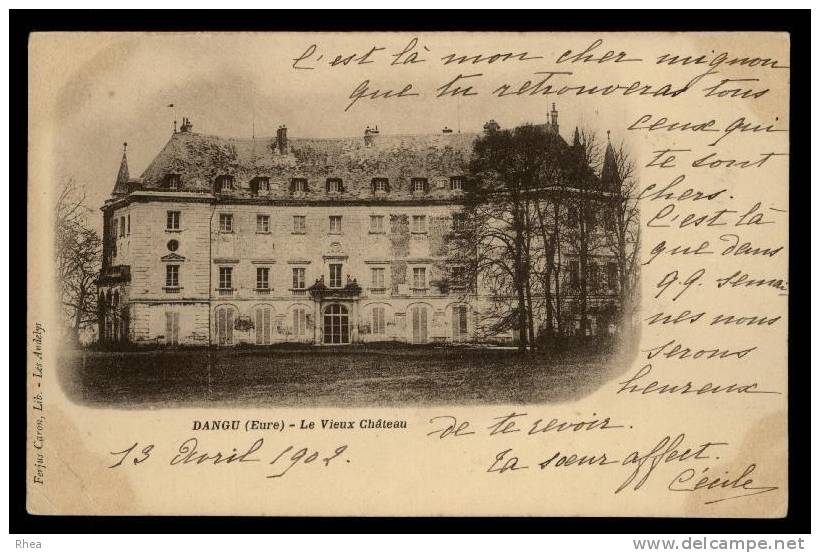 C'est là mon cher mignon
que tu retrouveras tous
ceux qui
te sont
chers.
C'est là
que dans
q.q. semai-
nes nous
serons
heureux
de te revoir.
Ta sœur affect.
Cécile
DANGU (Eure) - Le Vieux Château
13 Avril 1902.
Ferjus Caron, Lib. - Les Andelys
Rhea
http://www.delcampe.net